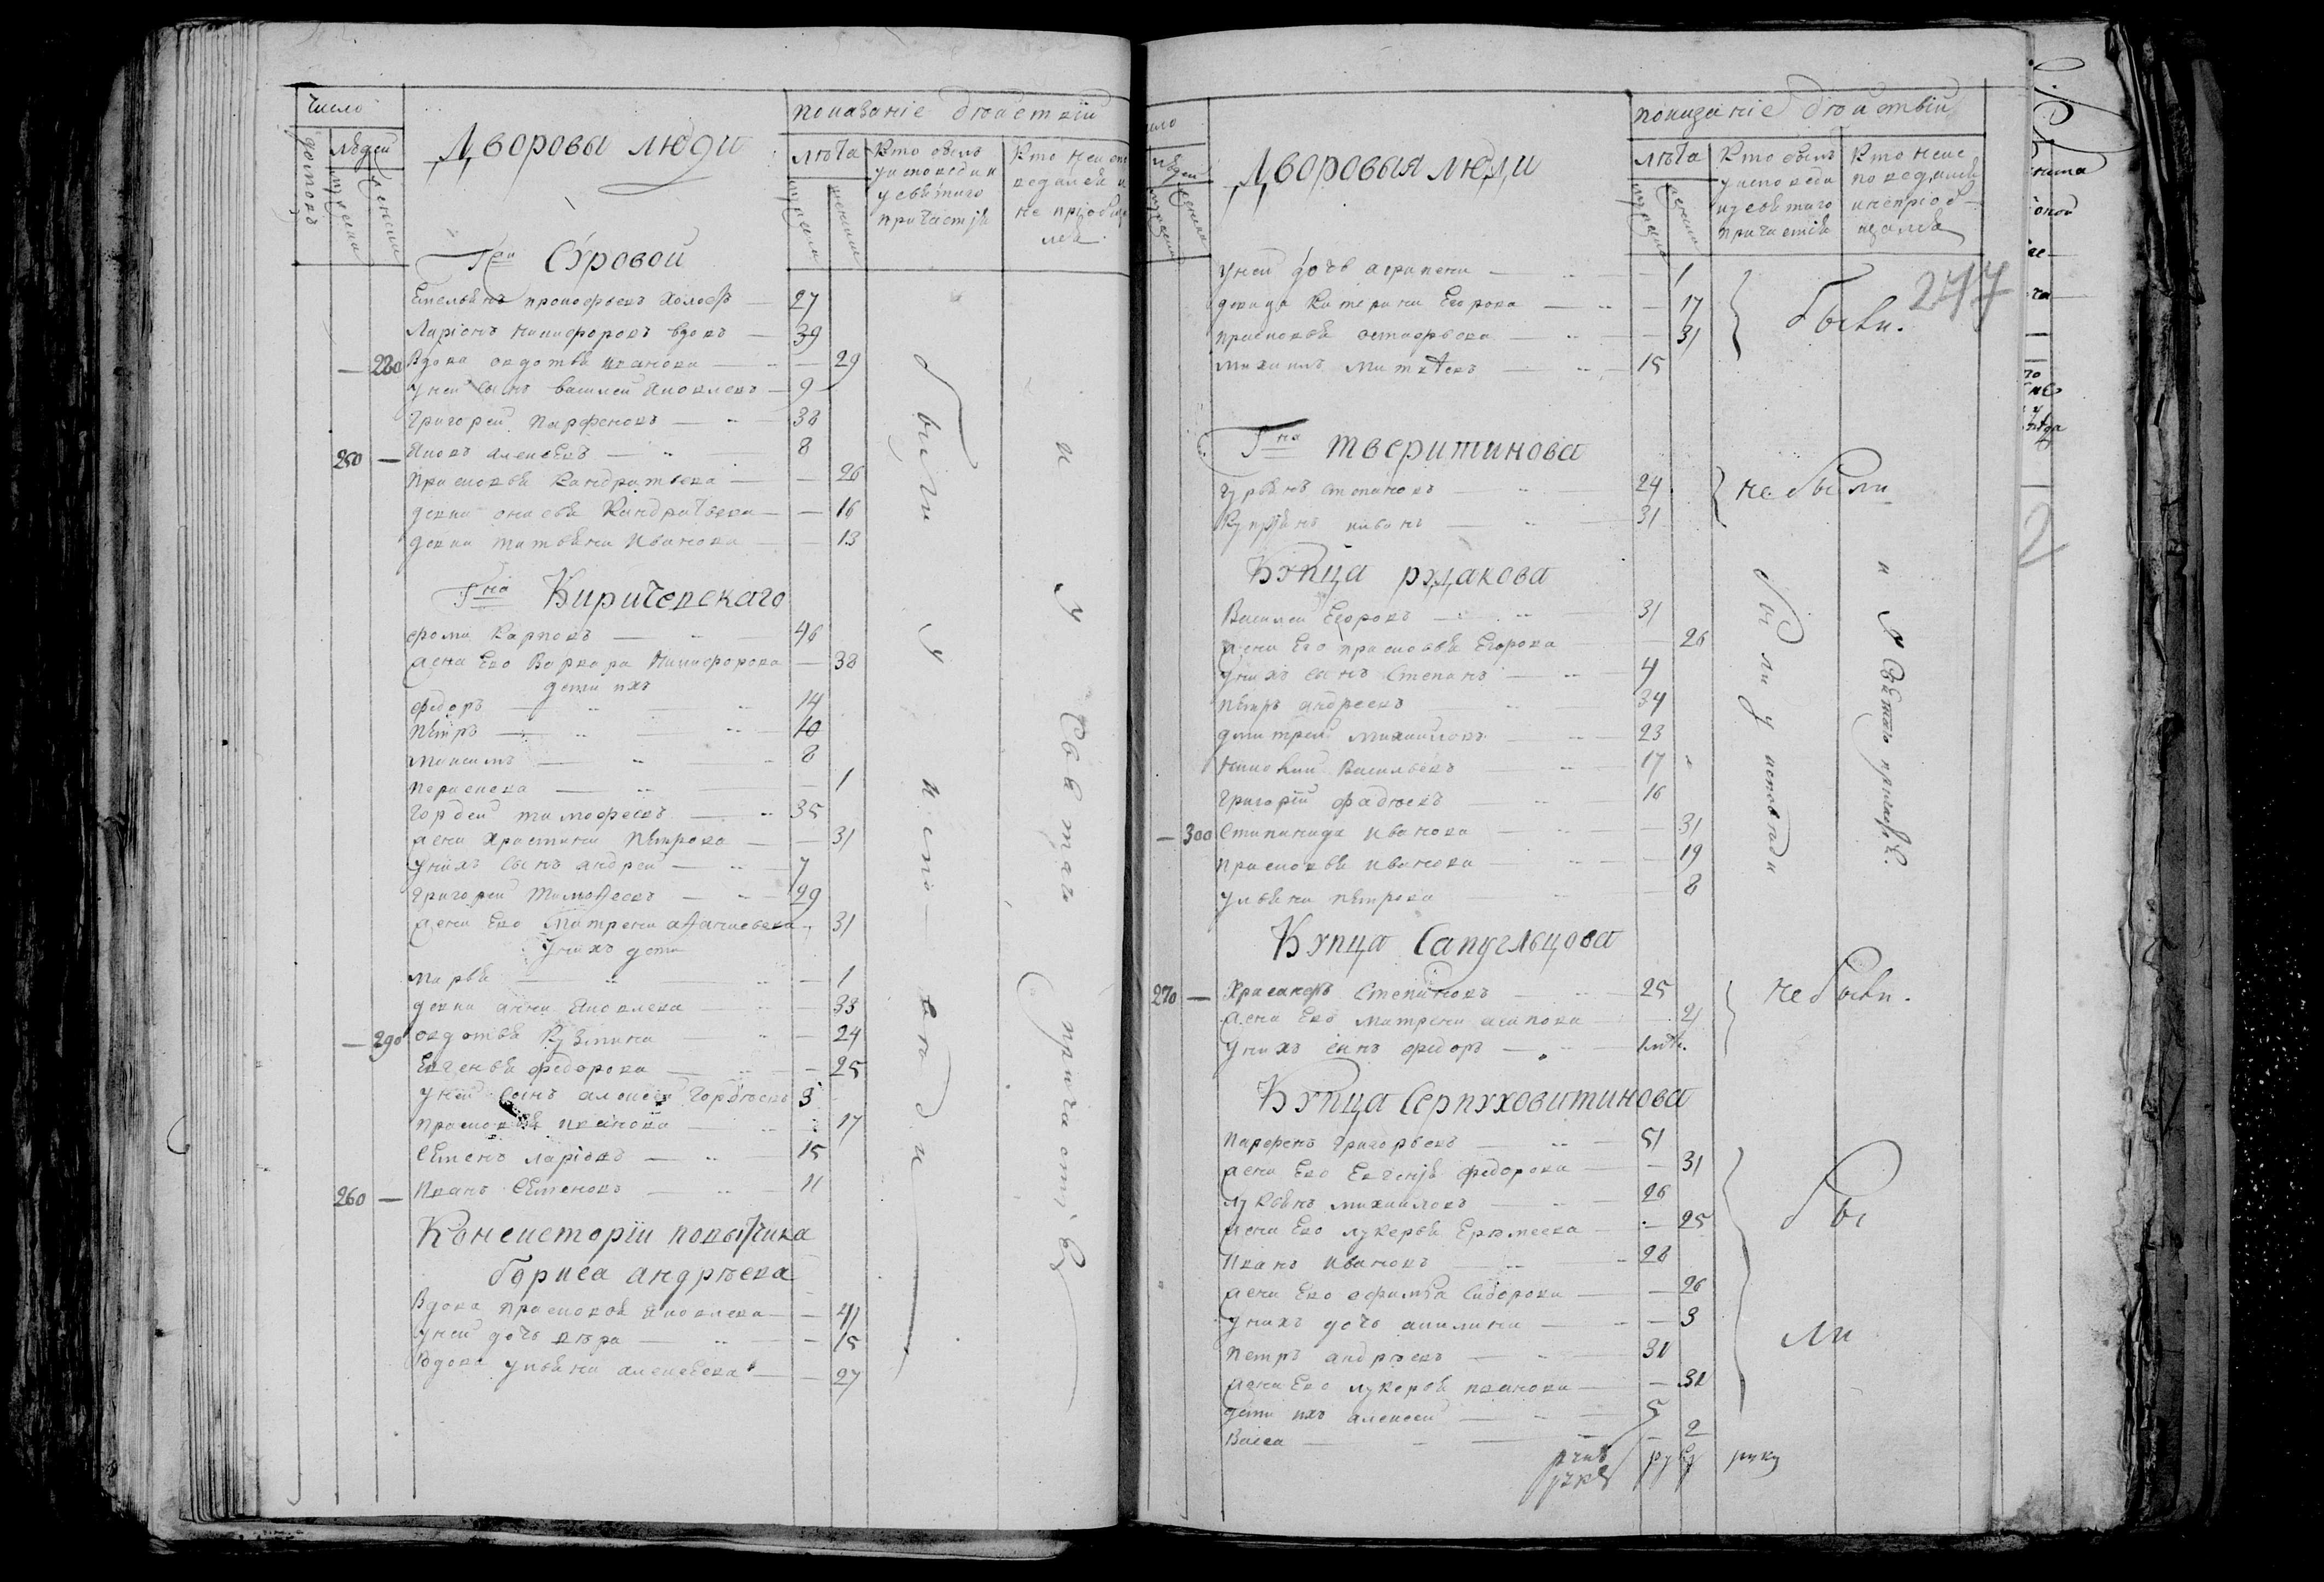 Число
дворовъ
людей
мужеска
женска
Дворовы люди
показаніе дѣйствій
лѣта
мужска
женски
Кто былъ
у исповеди и
у святаго
причастія
Кто не испо
ведался и
не пріобща
лся
Гжи Суровой
Емельянъ прокофьевъ холостъ — 27
Ларіонъ никифоровъ вдовъ — 39
— 280 Вдова овдотья иванова — 29
У ней сынъ василей Яковлевъ — 9
Григорей Парфеновъ — 38
250 — Яковъ алексеевъ — 8
Прасковья Кандратьева — 26
девка Кандратьева — 16
девка татьяна Иванова — 13
Гна Киричевскаго
фома Карповъ — 46
жена Ево Варвара Никифорова — 38
дети ихъ
федоръ — 14
Пётръ — 10
Максимъ — 8
Парасковa — 1
Гордей тимофеевъ — 35
жена Христина Петрова — 31
У нихъ сынъ андрей — 7
Григорей Тимоѳеевъ — 29
жена Ево Матрена аѳанасьева 31
У нихъ дети
Марья — 1
девка анна Яковлева — 33
— 290 овдотья Кузмина — 24
Евгенья федорова — 25
У ней сынъ алексей Гордѣевъ 3
Прасковья иванова — 17
Семенъ ларіовъ — 15
260 — Иванъ Семеновъ — 11
Консисторіи повытчика
бориса андрѣева
Вдова Прасковья Яковлева — 41
У ней дочь вѣра — 15
Вдова ульяна алексеева — 27
были у исповеди
и у Святаго причастія
число
людей
мужеска
женска
Дворовыя люди
показаніе дѣйствій
лѣта
мужска
женска
Кто былъ
у исповеди
и у святаго
причастія
Кто не ис
поведался
и не пріоб
щался
247
У ней дочь агрипена — 1
девица Катерина Егорова — 17
прасковья остафьева — 31
михаилъ Матвѣевъ — 15
были.
Гна тверитинова
Гурьянъ Степановъ — 24
Купріянъ — 31
не были
Купца рудакова
Василей Егоровъ — 31
жена Его прасковья Егорова — 26
У нихъ сынъ Степанъ — 4
Петръ андреевъ — 34
дмитрей михаиловъ — 23
Васильевъ — 17
Григорій фадѣевъ — 16
— 300 Степанида иванова — 31
прасковья иванова — 19
ульяна петрова — 8
были у исповеди
и у Святаго причастія.
Купца Сапугльцова
270 — Степановъ — 25
жена Ево матрена агапова — 21
У нихъ сынъ федоръ — 1
не были.
Купца Серпуховитинова
Парфенъ Григорьевъ — 51
жена Ево Евгенія федорова — 31
лукьянъ михаиловъ — 26
жена Ево лукерья Ерѣмеева — 25
Иванъ ивановъ — 28
жена Ево офимья Сидорова — 26
У нихъ дочь акилина — 3
Петръ андрѣевъ — 31
жена Ево лукерья иванова — 31
дети ихъ алексей — 5
Васса — 2
бы
ли
руку